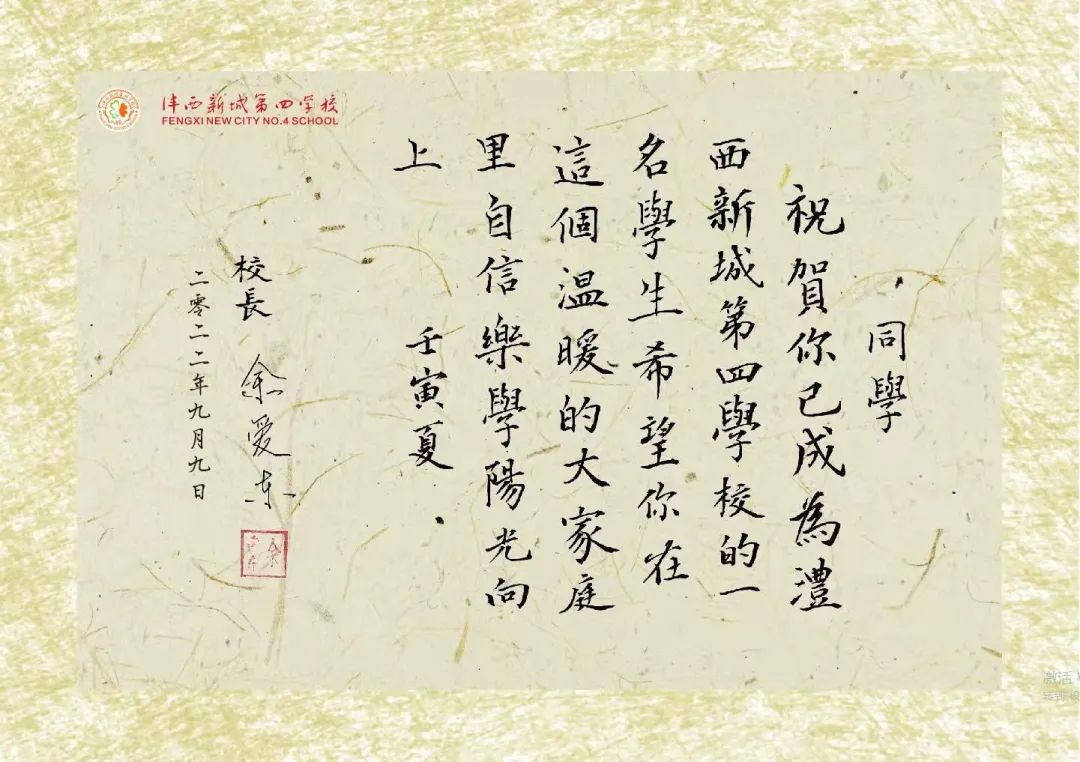 沣西新城第四学校
FENGXI NEW CITY NO.4 SCHOOL
同學
祝賀你已成為灃
西新城第四學校的一
名學生希望你在
這個温暖的大家庭
里自信樂學陽光向
上
壬寅夏
校長 余爱东
二零二二年九月九日
激活
转到